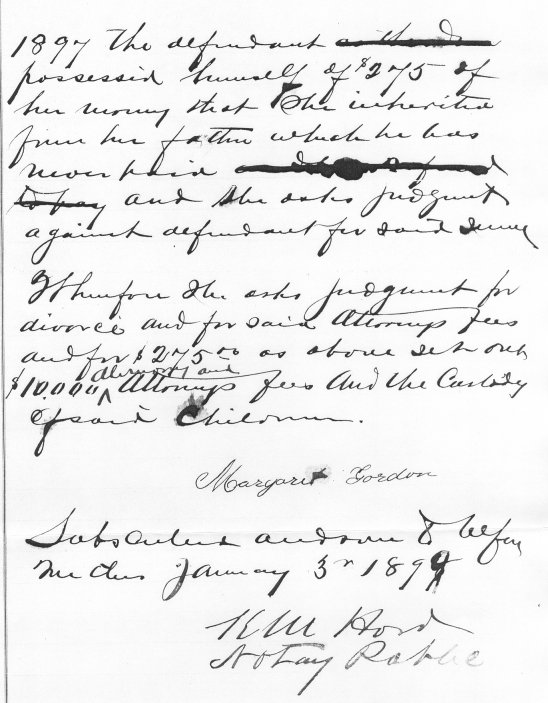 1897 the defendant
possessed himself of $275 of
her money that she inherited
from her father which he has
never paid
to pay and she asks judgment
against defendant for said sum
Wherefore she asks judgment for
divorce and for said Attorneys fees
and for $275.00 as above set out
alimony and
$100.00 Attorneys fees And the Custody
of said Children.
Margaret Gordon
Subscribed and sworn to before
me this January 3rd 1899
K M Hord
Notary Public